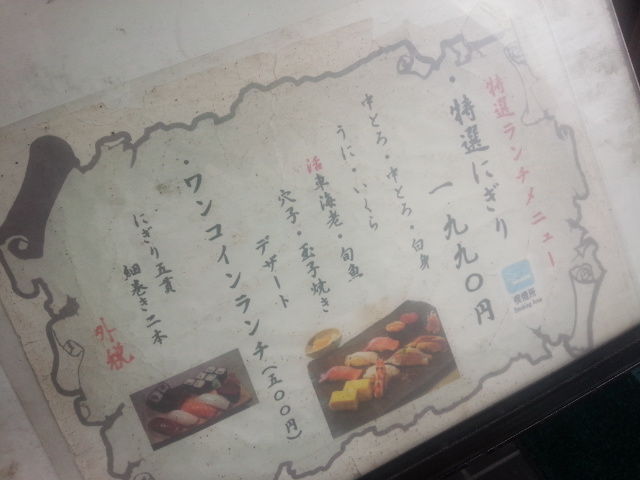 特選ランチメニュー
・特選にぎり
一九九〇円
中とろ・中とろ・白身
うに・いくら
活車海老・旬魚
穴子・玉子焼き
デザート
・ワンコインランチ(五〇〇円)
にぎり五貫
細巻き二本
外税
喫煙所
Smoking Area